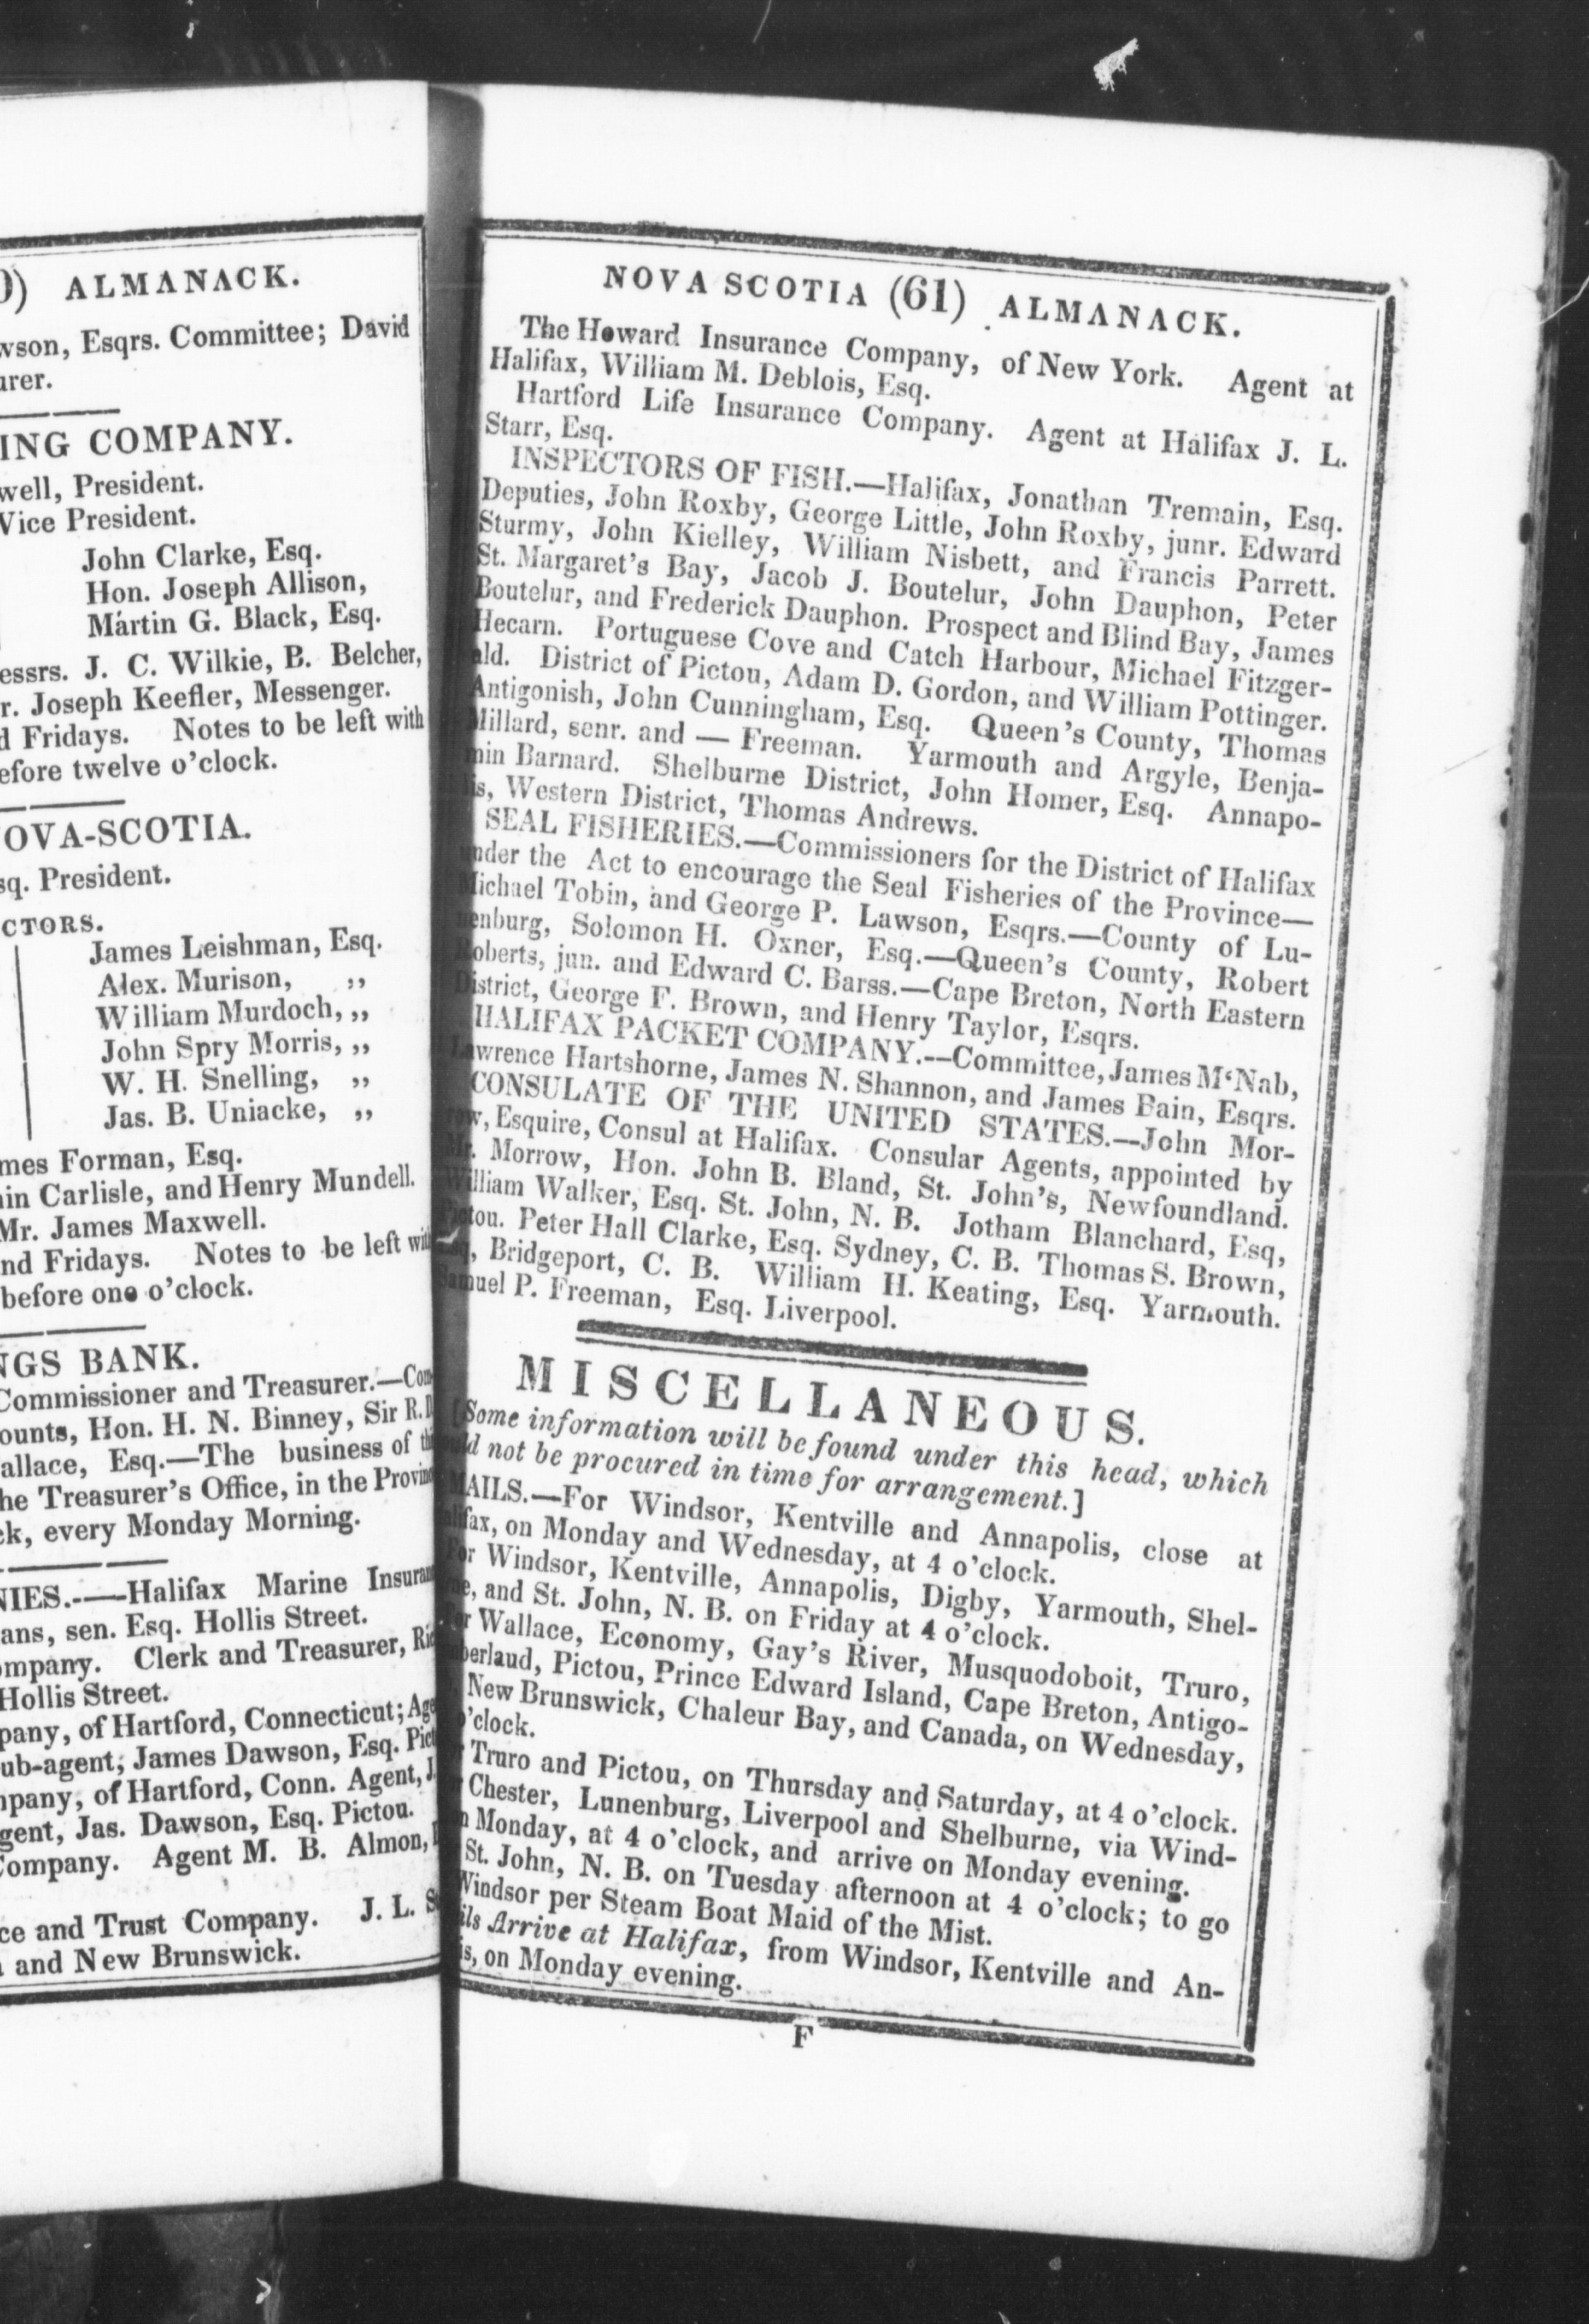 ALMANACK.
Esqrs. Committee; David
COMPANY.
President.
Vice President.
John Clarke, Esq.
Hon. Joseph Allison,
Martin G. Black, Esq.
J. C. Wilkie, B. Belcher,
Joseph Keefler, Messenger.
Fridays. Notes to be left with
twelve o'clock.
President.
James Leishman, Esq.
Alex. Murison, ,,
William Murdoch, ,,
John Spry Morris, ,,
W. H. Snelling, ,,
Jas. B. Uniacke, ,,
Forman, Esq.
Carlisle, and Henry Mundell.
Mr. James Maxwell.
Fridays. Notes to be left
before one o'clock.
BANK.
Commissioner and Treasurer.—
Hon. H. N. Binney, Sir R.
Esq.—The business of
Treasurer's Office, in the
every Monday Morning.
Halifax Marine
sen. Esq. Hollis Street.
Clerk and Treasurer,
Hollis Street.
of Hartford, Connecticut;
James Dawson, Esq.
of Hartford, Conn. Agent,
Jas. Dawson, Esq. Pictou.
Company. Agent M. B. Almon,
and Trust Company. J. L.
and New Brunswick.
NOVA SCOTIA (61) ALMANACK.
The Howard Insurance Company, of New York. Agent at
Halifax, William M. Deblois, Esq.
Hartford Life Insurance Company. Agent at Halifax J. L.
Starr, Esq.
INSPECTORS OF FISH.—Halifax, Jonathan Tremain, Esq.
Deputies, John Roxby, George Little, John Roxby, junr. Edward
Sturmy, John Kielley, William Nisbett, and Francis Parrett.
St. Margaret's Bay, Jacob J. Boutelur, John Dauphon, Peter
Boutelur, and Frederick Dauphon. Prospect and Blind Bay, James
Hecarn. Portuguese Cove and Catch Harbour, Michael Fitzger-
ald. District of Pictou, Adam D. Gordon, and William Pottinger.
Antigonish, John Cunningham, Esq. Queen's County, Thomas
Millard, senr. and — Freeman. Yarmouth and Argyle, Benja-
min Barnard. Shelburne District, John Homer, Esq. Annapo-
lis, Western District, Thomas Andrews.
SEAL FISHERIES.—Commissioners for the District of Halifax
under the Act to encourage the Seal Fisheries of the Province—
Michael Tobin, and George P. Lawson, Esqrs.—County of Lu-
nenburg, Solomon H. Oxner, Esq.—Queen's County, Robert
Roberts, jun. and Edward C. Barss.—Cape Breton, North Eastern
District, George F. Brown, and Henry Taylor, Esqrs.
HALIFAX PACKET COMPANY.--Committee, James M‘Nab,
Lawrence Hartshorne, James N. Shannon, and James Bain, Esqrs.
CONSULATE OF THE UNITED STATES.--John Mor-
row, Esquire, Consul at Halifax. Consular Agents, appointed by
Mr. Morrow, Hon. John B. Bland, St. John's, Newfoundland.
William Walker, Esq. St. John, N. B. Jotham Blanchard, Esq,
Pictou. Peter Hall Clarke, Esq. Sydney, C. B. Thomas S. Brown,
Esq, Bridgeport, C. B. William H. Keating, Esq. Yarmouth.
Samuel P. Freeman, Esq. Liverpool.
MISCELLANEOUS.
[Some information will be found under this head, which
could not be procured in time for arrangement.]
MAILS.—For Windsor, Kentville and Annapolis, close at
Halifax, on Monday and Wednesday, at 4 o'clock.
For Windsor, Kentville, Annapolis, Digby, Yarmouth, Shel-
and St. John, N. B. on Friday at 4 o'clock.
For Wallace, Economy, Gay's River, Musquodoboit, Truro,
Pictou, Prince Edward Island, Cape Breton, Antigo-
New Brunswick, Chaleur Bay, and Canada, on Wednesday,
o'clock.
Truro and Pictou, on Thursday and Saturday, at 4 o'clock.
Chester, Lunenburg, Liverpool and Shelburne, via Wind-
Monday, at 4 o'clock, and arrive on Monday evening.
St. John, N. B. on Tuesday afternoon at 4 o'clock; to go
Windsor per Steam Boat Maid of the Mist.
Arrive at Halifax, from Windsor, Kentville and An-
on Monday evening.
F